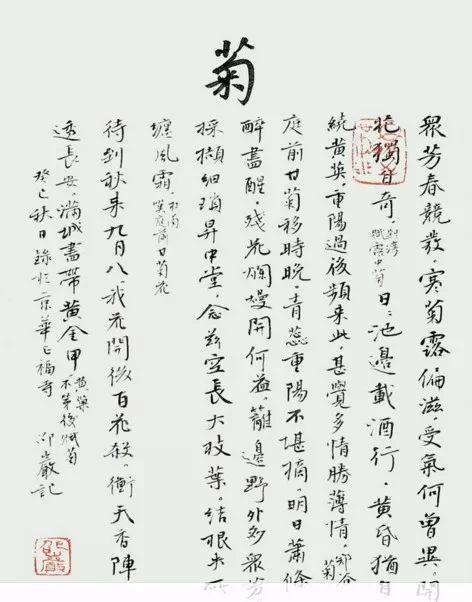 菊
眾芳春競發，寒菊露偏滋。受氣何曾異，開
花獨自奇。刘湾 賦露中菊 日：池邊載酒行，黃昏猶自
繞黃英。重陽過後頻來此，甚覺多情勝薄情 鄭谷 菊
庭前甘菊移時晚，青蕊重陽不堪摘。明日蕭條
醉盡醒，殘花爛熳開何益。籬邊野外多眾芳
採擷細瑣昇中堂，念茲空長大枝葉。結根失所
纏風霜。杜甫 嘆庭前甘菊花
待到秋來九月八我花開後百花殺。衝天香陣
透長安，滿城盡帶黃金甲 黃巢 不第後賦菊
癸巳秋日錄於京華正福寺 邱巖記